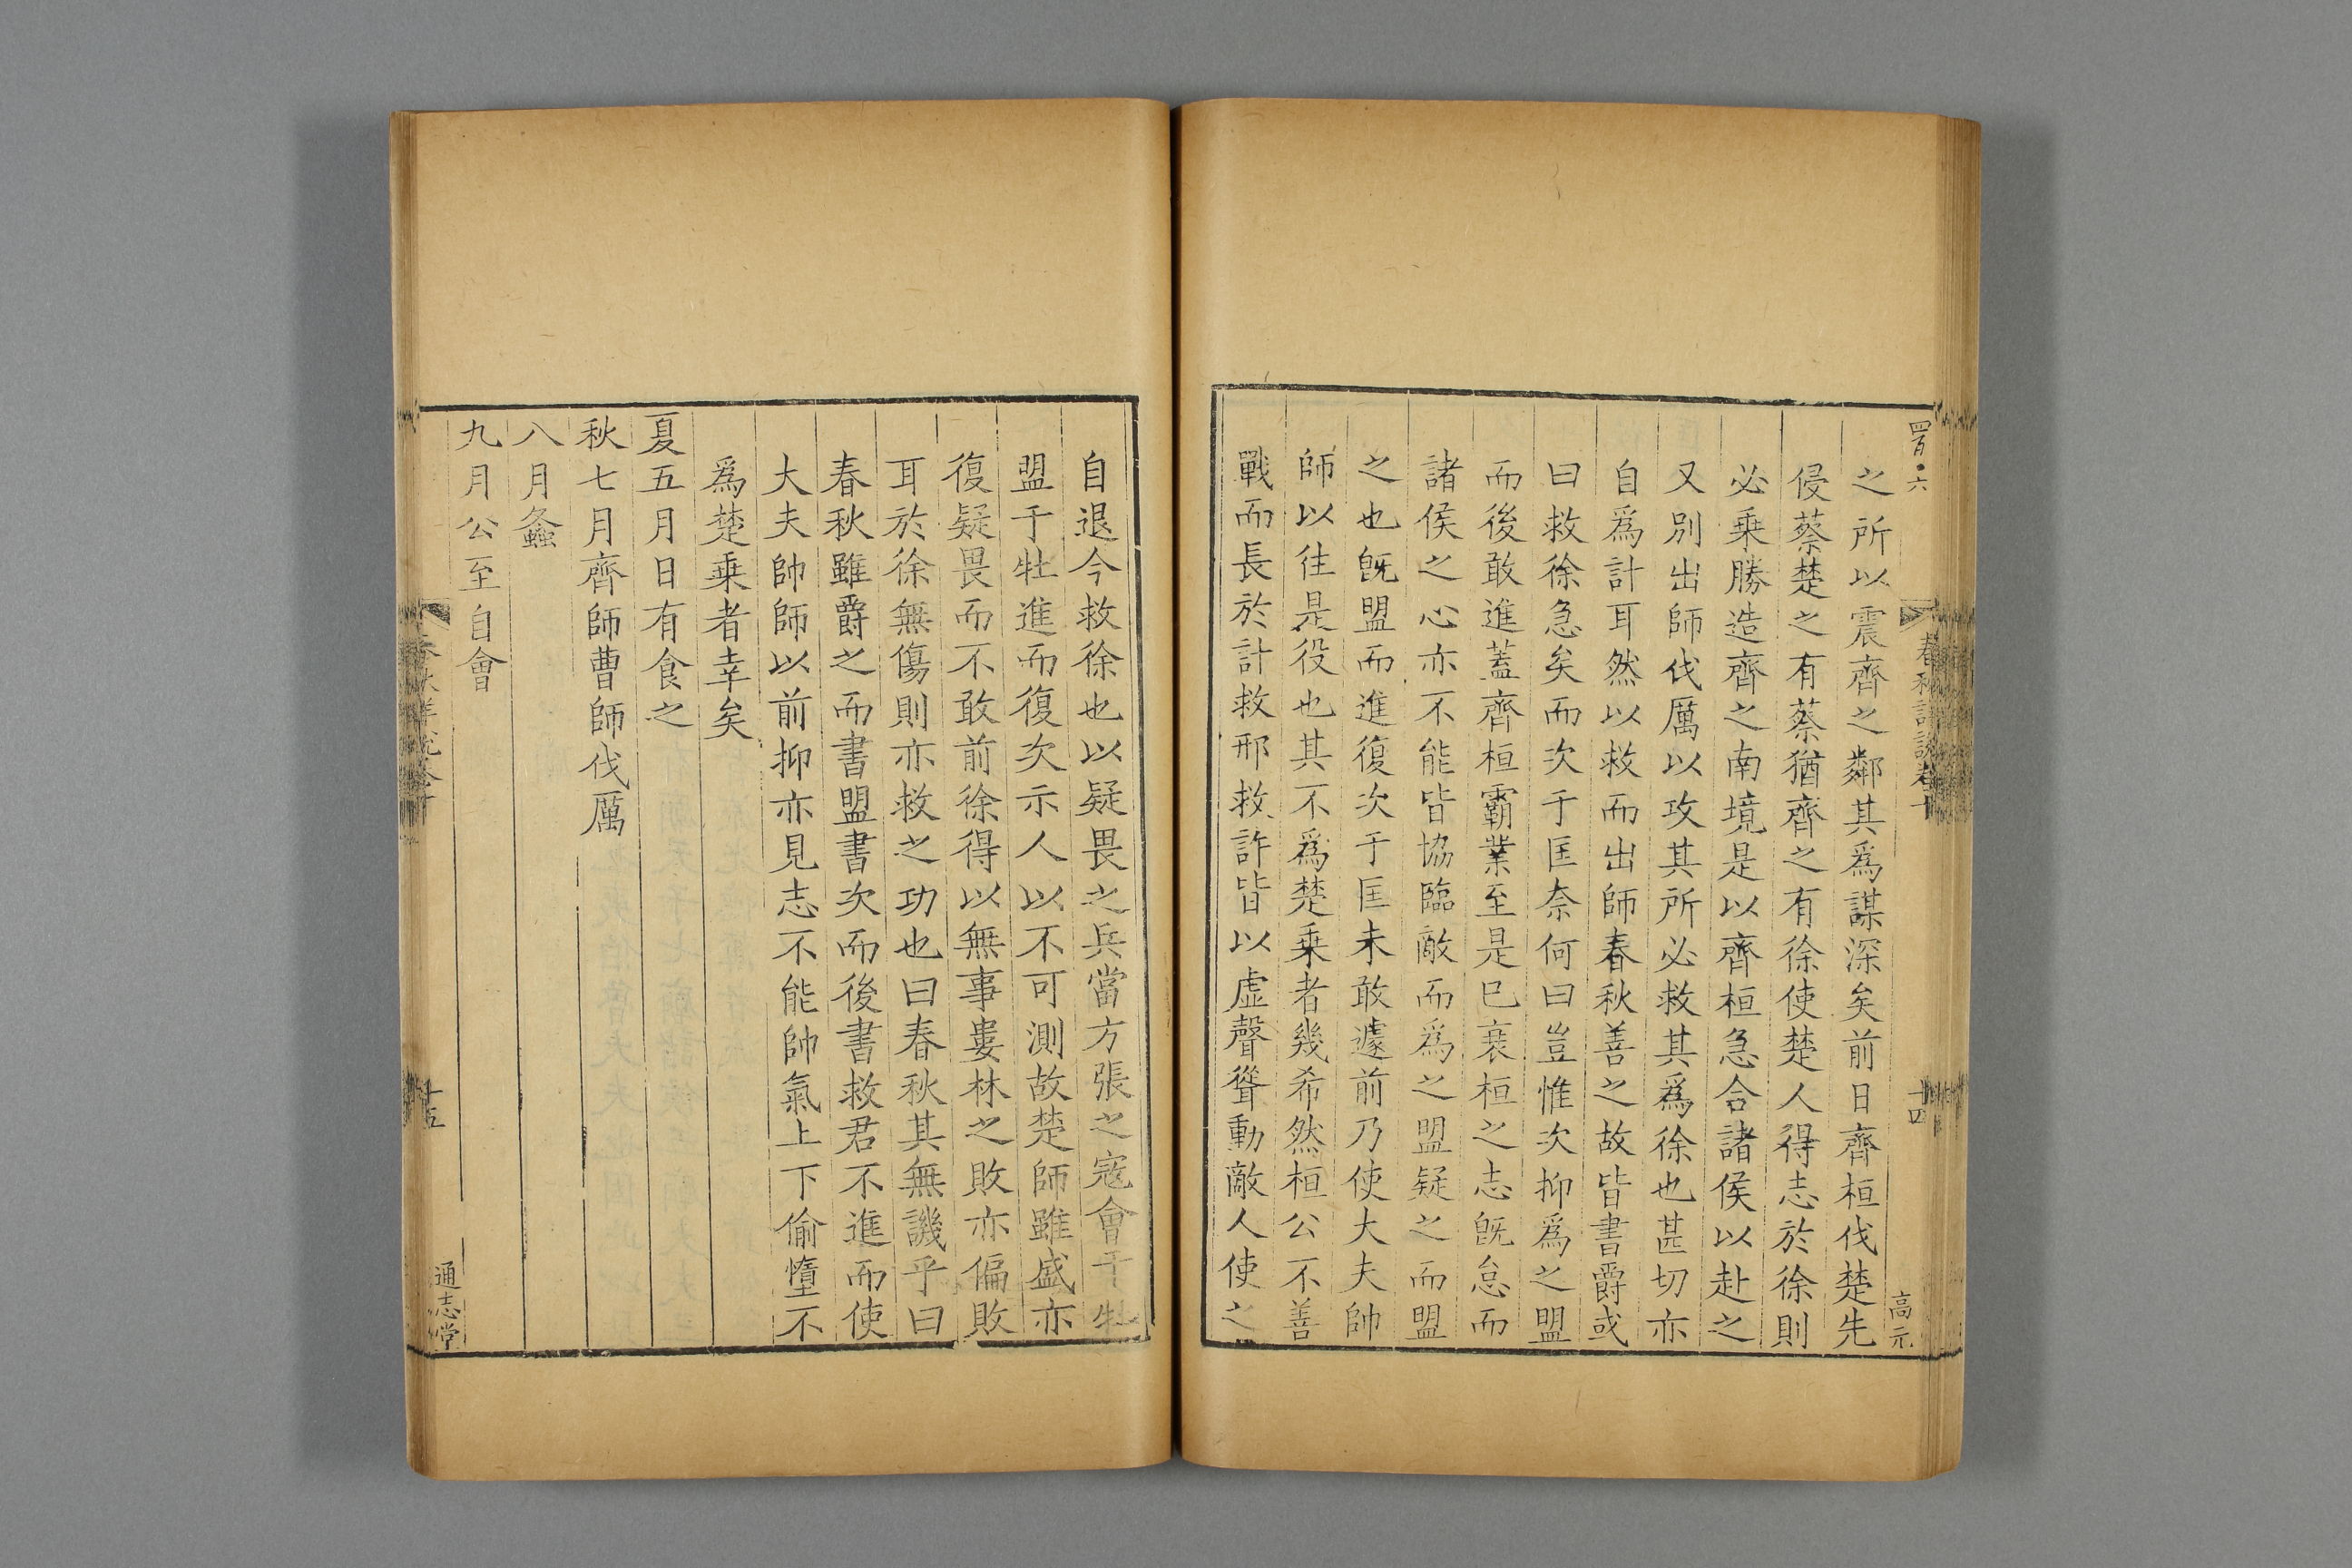 之所以震齊之鄰其爲謀深矣前日齊桓伐楚先
侵蔡楚之有蔡猶齊之有徐使楚人得志於徐則
必乗勝造齊之南境是以齊桓急合諸侯以赴之
又別出師伐厲以攻其所必救其爲徐也甚切亦
自爲計耳然以救而出師春秋善之故皆書爵或
曰救徐急矣而次于匡奈何曰豈惟次抑爲之盟
而後敢進蓋齊桓霸業至是已衰桓之志旣怠而
諸侯之心亦不能皆協臨敵而爲之盟疑之而盟
之也旣盟而進復次于匡未敢遽前乃使大夫帥
師以往是役也其不爲楚乗者幾希然桓公不善
戰而長於計救邢救許皆以虛聲聳動敵人使之
自退今救徐也以疑畏之兵當方張之寇會于牡
盟于牡進而復次示人以不可測故楚師雖盛亦
復疑畏而不敢前徐得以無事婁林之敗亦偏敗
耳於徐無傷則亦救之功也曰春秋其無譏乎曰
春秋雖爵之而書盟書次而後書救君不進而使
大夫帥師以前抑亦見志不能帥氣上下偷墮不
爲楚乗者幸矣
夏五月日有食之
秋七月齊師曹師伐厲
八月螽
九月公至自會
春秋詳説卷十
十四
高元
十五
通志堂